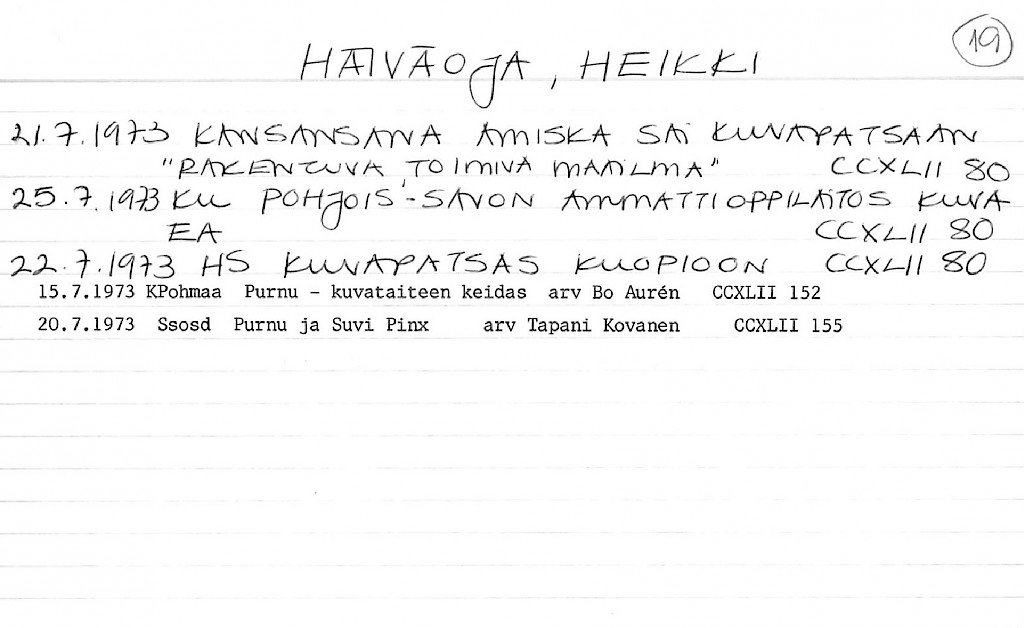 19
HÄIVÄOJA, HEIKKI
21.7.1973 KANSANSANA AMISKA SAI KUVAPATSAAN
"RAKENTUVA, TOIMIVA MAAILMA" CCXLII 80
25.7.1973 KU POHJOIS-SAVON AMMATTIOPPILAITOS KUVA
EA CCXLII 80
22.7.1973 HS KUVAPATSAS KUOPIOON CCXLII 80
15.7.1973 KPohmaa Purnu - kuvataiteen keidas arv Bo Aurén CCXLII 152
20.7.1973 Ssosd Purnu ja Suvi Pinx arv Tapani Kovanen CCXLII 155